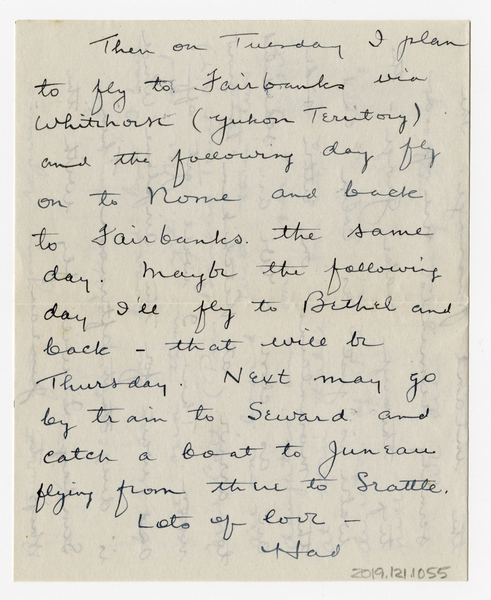 Then on Tuesday I plan
to fly to Fairbanks via
Whitehorse (Yukon Territory)
and the following day fly
on to Nome and back
to Fairbanks. the same
day. Maybe the following
day I'll fly to Bethel and
back – that will be
Thursday. Next may go
by train to Seward and
catch a boat to Juneau
flying from there to Seattle.
Lots of love –
Had
2019.121.1055